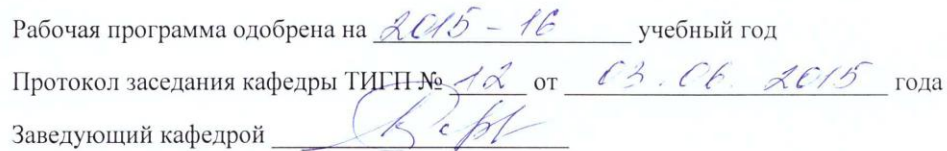 Рабочая программа одобрена на 2015 - 16 учебный год
Протокол заседания кафедры ТИГП № 12 от 03. 06. 2015 года
Заведующий кафедрой